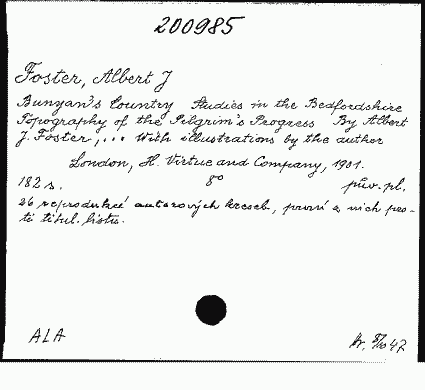 200985
Foster, Albert J
Bunyan's Country Studies in the Bedfordshire
Topography of the Pilgrim's Progress By Albert
J. Foster, ... With illustrations by the author
London, H. Virtue and Company, 1901.
182 s. 8° pův. pl.
26 reprodukcí autorových kreseb, první z nich pro-
ti titul. listu.
ALA 47